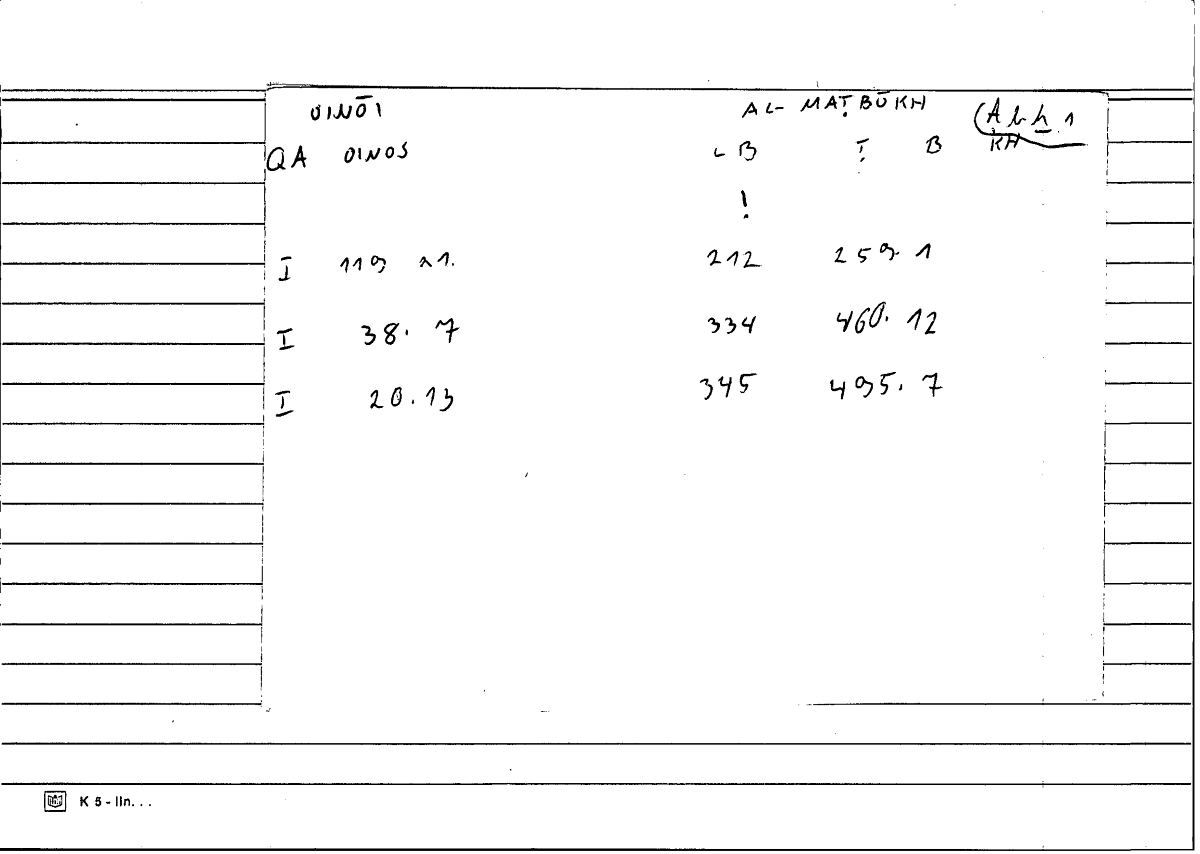 OINŌI AL-MAṬBŪKH
QA OINOS LB Ṭ B KH
!
I 119 21. 212 259 1
I 38. 7 334 460. 12
I 20.13 345 495. 7
K 5 - lin. . .